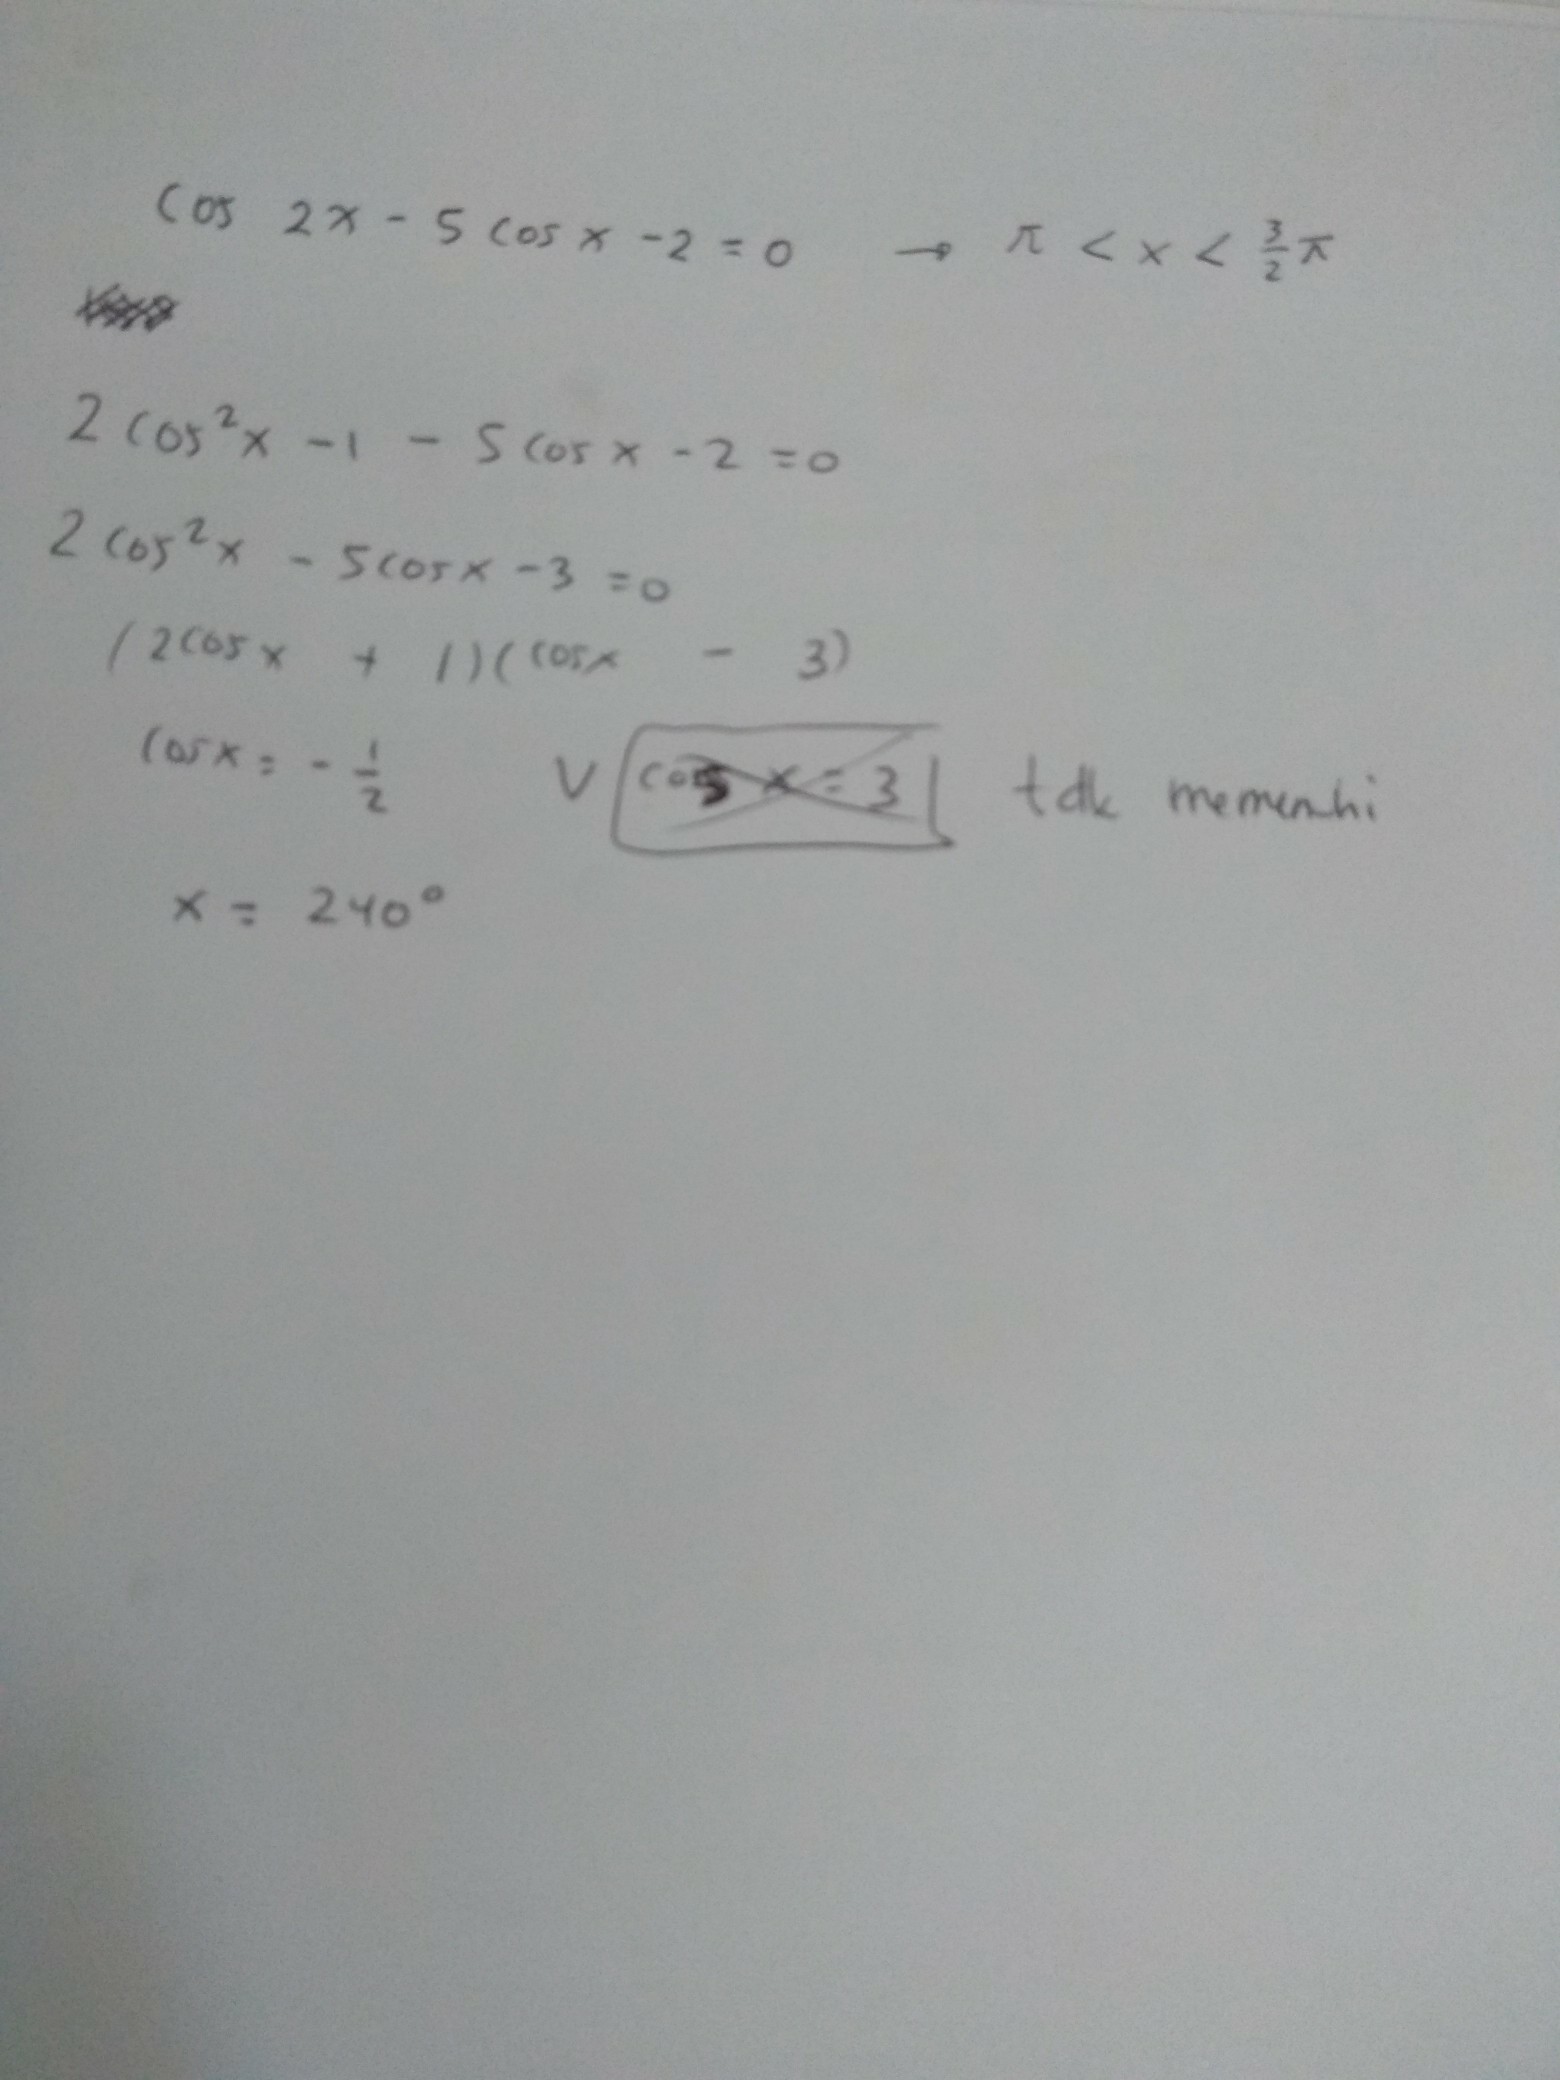 cos 2x - 5 cos x - 2 = 0 → π < x < 3/2 π
2 cos²x - 1 - 5 cos x - 2 = 0
2 cos²x - 5 cos x - 3 = 0
(2 cos x + 1)(cos x - 3)
cos x = - 1/2 V cos x = 3 tdk memenuhi
x = 240°